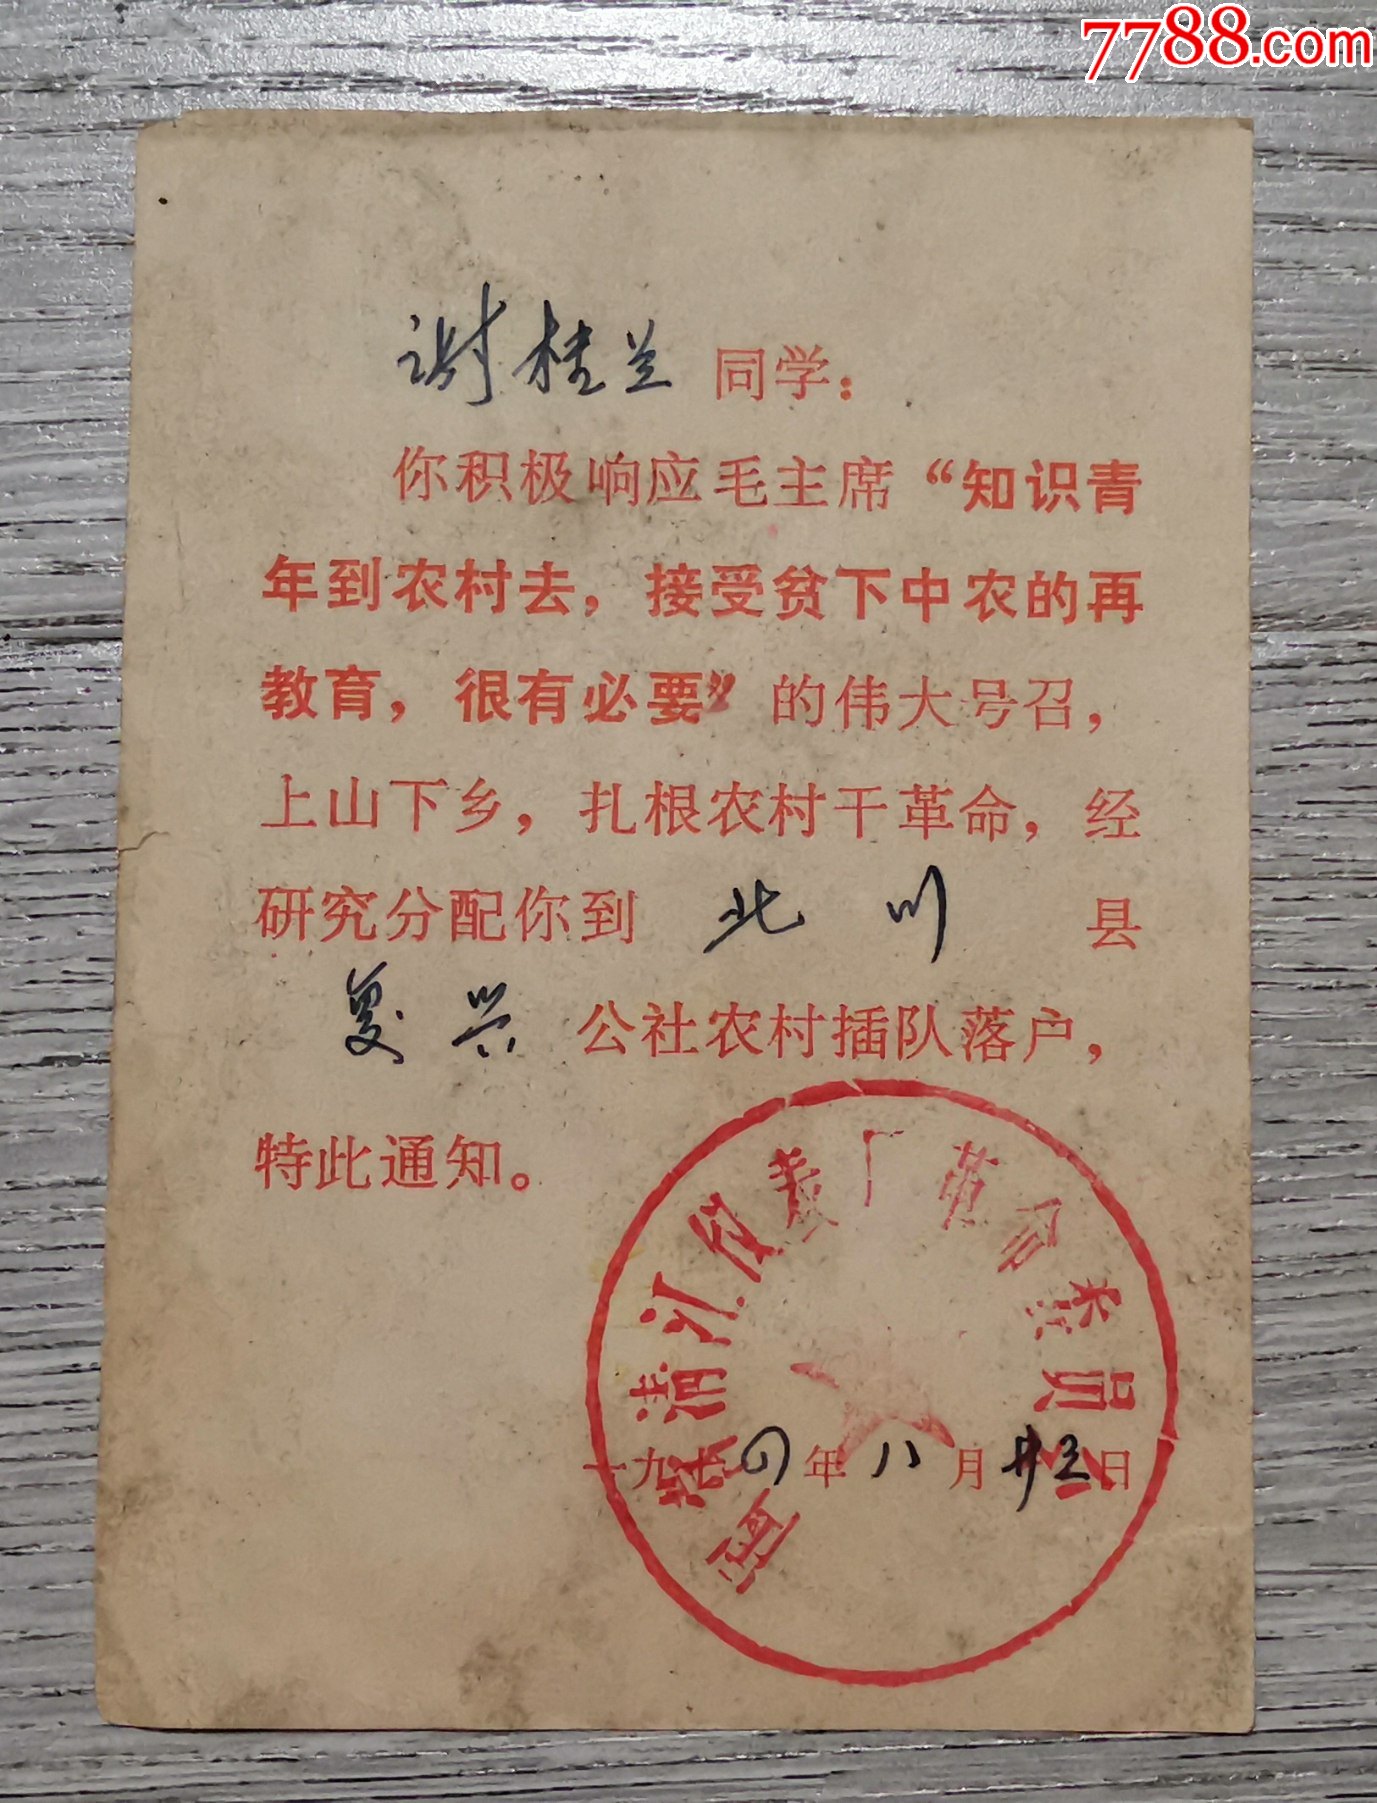 7788.com
谢桂兰 同学：
你积极响应毛主席“知识青
年到农村去，接受贫下中农的再
教育，很有必要”的伟大号召，
上山下乡，扎根农村干革命，经
研究分配你到 北川 县
复兴 公社农村插队落户，
特此通知。
清江仪表厂革命委员会
一九七四年八月廿三日